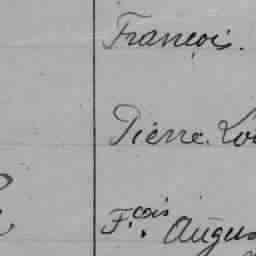 François.
Pierre Lou
F.çois Augus